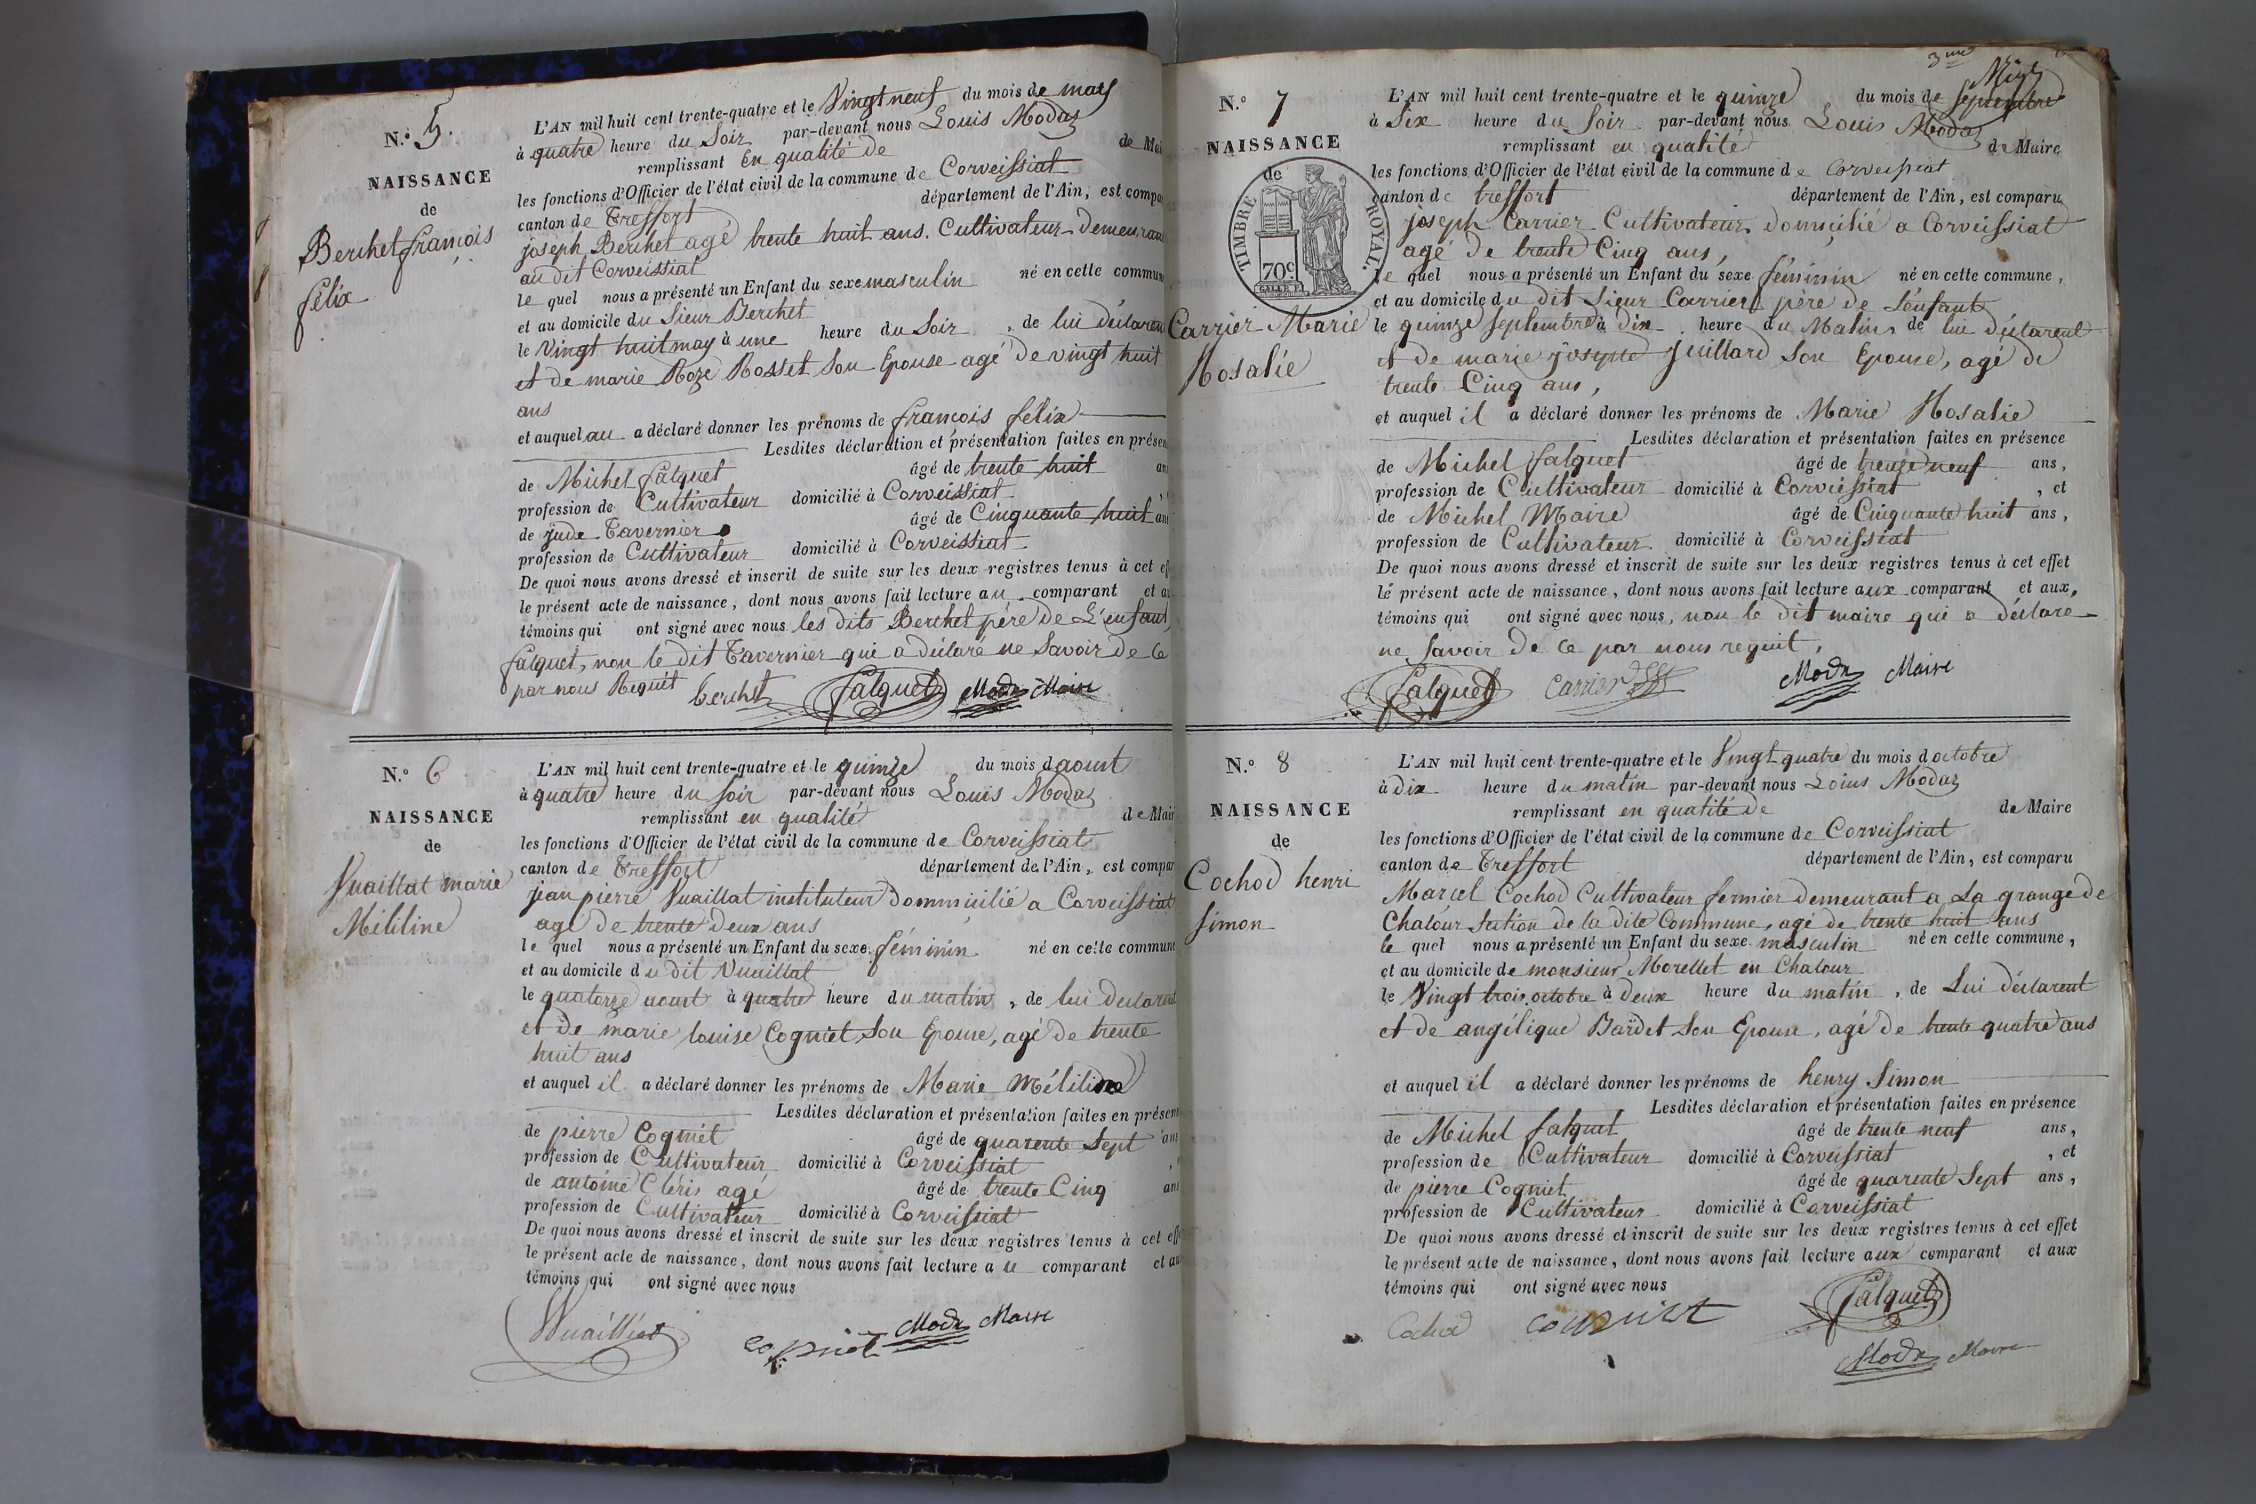 N.º 5.
NAISSANCE
de
Berchet françois
félix
L'AN mil huit cent trente-quatre et le Vingt neuf du mois de may
à quatre heure du Soir par-devant nous Louis Modas
remplissant En qualité de de Mai
les fonctions d'Officier de l'état civil de la commune de Corveissiat
canton de Treffort département de l'Ain, est compa
joseph Berchet agé trente huit ans. Cultivateur Demeuran
au dit Corveissiat
le quel nous a présenté un Enfant du sexe masculin né en cette commun
et au domicile du Sieur Berchet
le Vingt huit may à une heure du Soir , de lui déclaren
et de marie Roze Rosset Son Epouse agé de vingt huit
ans
et auquel au a déclaré donner les prénoms de françois félix
Lesdites déclaration et présentation faites en présen
de Michel falquet âgé de trente huit an
profession de Cultivateur domicilié à Corveissiat
de jude Tavernier âgé de Cinquante huit an
profession de Cultivateur domicilié à Corveissiat
De quoi nous avons dressé et inscrit de suite sur les deux registres tenus à cet ef
le présent acte de naissance, dont nous avons fait lecture au comparant et au
témoins qui ont signé avec nous les dits Berchet père de L'enfant,
falquet, non le dit Tavernier qui a déclaré ne Savoir de ce
par nous Requit berchet falquet Modas Maire
N.º 6
NAISSANCE
de
Vuaillat marie
Méliline
L'AN mil huit cent trente-quatre et le quinze du mois d aoust
à quatre heure du Soir par-devant nous Louis Modas
remplissant en qualité de Mair
les fonctions d'Officier de l'état civil de la commune de Corveissiat
canton de Treffort département de l'Ain, est compar
jean pierre Vuaillat instituteur Dommicilié a Corveissiat
agé de trente deux ans
le quel nous a présenté un Enfant du sexe féminin né en cette commune
et au domicile du dit Vuaillat
le quatorze aoust à quatre heure du matin , de lui declarant
et de marie louise Cogniet Son Epouse, agé de trente
huit ans
et auquel il a déclaré donner les prénoms de Marie Méliline
Lesdites déclaration et présentation faites en présen
de pierre Cogniet âgé de quarente Sept ans
profession de Cultivateur domicilié à Corveissiat
de antoine Cléris agé âgé de trente Cinq ans
profession de Cultivateur domicilié à Corveissiat
De quoi nous avons dressé et inscrit de suite sur les deux registres tenus à cet effe
le présent acte de naissance, dont nous avons fait lecture a le comparant et au
témoins qui ont signé avec nous
Vuaillat cogniet Modas Maire
3me
N.º 7
NAISSANCE
de
TIMBRE ROYAL.
70c
Carrier Marie
Rosalie
L'AN mil huit cent trente-quatre et le quinze du mois de Septembre
à Six heure du Soir par-devant nous Louis Modas
remplissant en qualité de Maire
les fonctions d'Officier de l'état civil de la commune de Corveissiat
canton de treffort département de l'Ain, est comparu
joseph Carrier Cultivateur Domicilié a Corveissiat
agé de trente Cinq ans,
le quel nous a présenté un Enfant du sexe féminin né en cette commune,
et au domicile du dit Sieur Carrier père de l'enfant
le quinze Septembre à Dix heure du Matin, de lui déclarent
et de marie josephte juillard Son Epouse, agé de
trente Cinq ans,
et auquel il a déclaré donner les prénoms de Marie Rosalie
Lesdites déclaration et présentation faites en présence
de Michel falquet âgé de trente neuf ans,
profession de Cultivateur domicilié à Corveissiat , et
de Michel Maire âgé de Cinquante huit ans,
profession de Cultivateur domicilié à Corveissiat
De quoi nous avons dressé et inscrit de suite sur les deux registres tenus à cet effet
le présent acte de naissance, dont nous avons fait lecture aux comparant et aux
témoins qui ont signé avec nous, non le dit maire qui a déclare
ne Savoir de ce par nous requit,
falquet Carrier Modas Maire
N.º 8
NAISSANCE
de
Cochod henri
simon
L'AN mil huit cent trente-quatre et le Vingt quatre du mois d octobre
à dix heure du matin par-devant nous Loius Modas
remplissant en qualité de de Maire
les fonctions d'Officier de l'état civil de la commune de Corveissiat
canton de Treffort département de l'Ain, est comparu
Marcel Cochod Cultivateur fermier demeurant a La grange de
Chalour Section de la dite Commune, agé de trente huit ans
le quel nous a présenté un Enfant du sexe masculin né en cette commune,
et au domicile de monsieur Morellet en Chalour
le Vingt trois octobre à Deux heure du matin , de Lui déclarent
et de angélique Bardet Son Epouse, agé de trente quatre ans
et auquel il a déclaré donner les prénoms de henry Simon
Lesdites déclaration et présentation faites en présence
de Michel falquet âgé de trente neuf ans,
profession de Cultivateur domicilié à Corveissiat , et
de pierre Cogniet âgé de quarente Sept ans,
profession de Cultivateur domicilié à Corveissiat
De quoi nous avons dressé et inscrit de suite sur les deux registres tenus à cet effet
le présent acte de naissance, dont nous avons fait lecture aux comparant et aux
témoins qui ont signé avec nous
Cochod cogniet falquet
Modas Maire